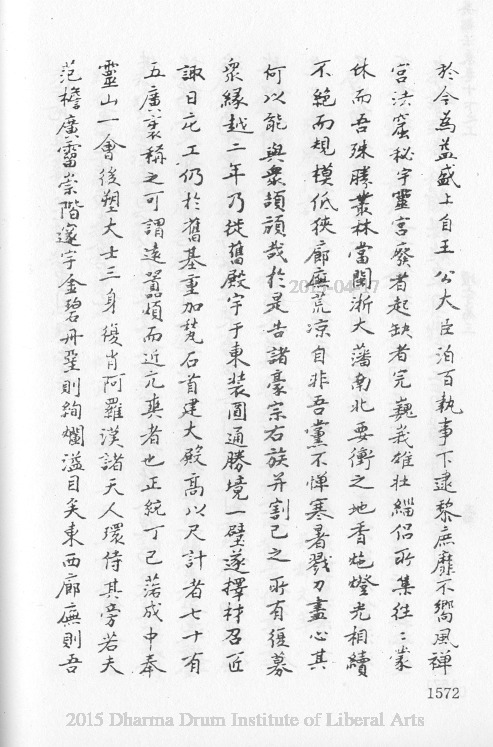 於今為益盛上自王公大臣洎百執事下逮黎庶靡不嚮風禪
宮法窟秘宇靈宮廢者起缺者完巍峩雄壯緇侶所集往〻蒙
休而吾殊勝叢林當閩浙大藩南北要衝之地香炧燈光相續
不絕而規模低狹廊廡荒凉自非吾黨不憚寒暑戮力盡心其
何以能與衆頡頏哉於是告諸豪宗右族并割己之所有復募
衆緣越二年乃徙舊殿宇于東裝圓通勝境一壁遂擇材召匠
諏日庀工仍於舊基重加甃石首建大殿高以尺計者七十有
五廣袤稱之可謂遠囂煩而近亢爽者也正統丁巳落成中奉
靈山一會後塑大士三身復肖阿羅漢諸天人環侍其旁若夫
范檐廣霤崇階邃宇金碧丹堊則絢爛溢目矣東西廊廡則吾
1572
2015-04-17
2015 Dharma Drum Institute of Liberal Arts